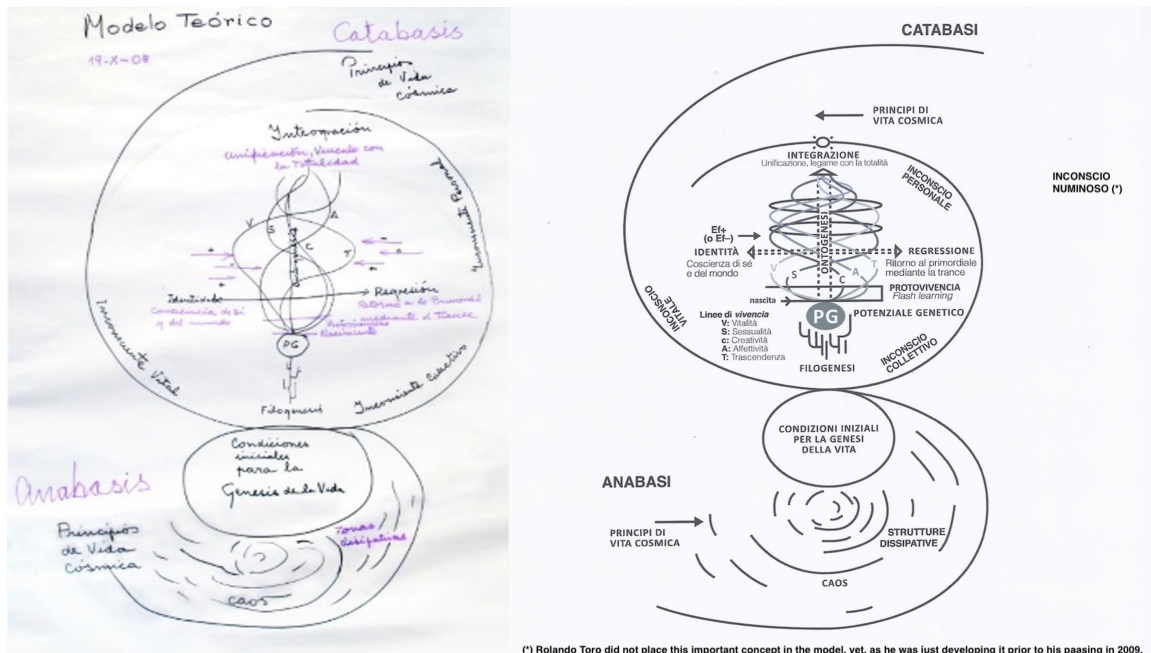 Modelo Teórico
19-X-08
Catabasis
Principios
de Vida
cósmica
Integración
Unificación, Vínculo con
la Totalidad
V
S
A
C
T
+
-
+
+
-
Identidad
Conciencia de sí
y del mundo
Regresión
Retorno a lo Primordial
mediante el Trance
Protovivencias
Nacimiento
PG
Filogenesis
Inconsciente Personal
Inconsciente Vital
Inconsciente Colectivo
Condiciones
iniciales
para la
Genesis de la Vida
Anabasis
Principios
de Vida
Cósmica
Zonas
disipativas
caos
CATABASI
PRINCIPI DI
VITA COSMICA
INTEGRAZIONE
Unificazione, legame con la totalità
INCONSCIO
PERSONALE
INCONSCIO
NUMINOSO (*)
ONTOGENESI
Ef+
(o Ef–)
IDENTITÀ
Coscienza di sé
e del mondo
REGRESSIONE
Ritorno al primordiale
mediante la trance
V
S
C
A
T
PROTOVIVENCIA
Flash learning
nascita
PG
POTENZIALE GENETICO
INCONSCIO
VITALE
Linee di vivencia
V: Vitalità
S: Sessualità
c: Creatività
A: Affettività
T: Trascendenza
FILOGENESI
INCONSCIO
COLLETTIVO
CONDIZIONI INIZIALI
PER LA GENESI
DELLA VITA
ANABASI
PRINCIPI DI
VITA COSMICA
STRUTTURE
DISSIPATIVE
CAOS
(*) Rolando Toro did not place this important concept in the model, yet, as he was just developing it prior to his paasing in 2009.